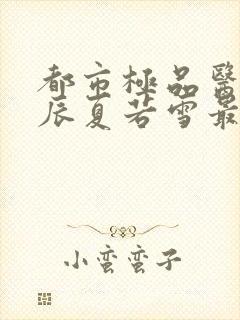 都市極品醫
辰夏若雪最
小蛮蛮子